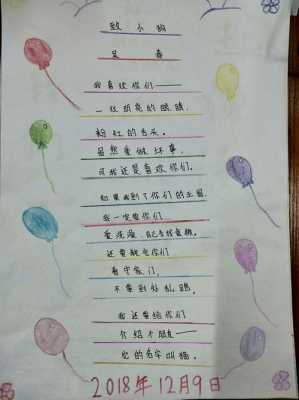 致小狗
我喜欢你们——
一双明亮的眼睛,
粉红的舌头。
虽然爱做坏事,
可我还是喜欢你们。
如果我到了你们的王国,
我一定要你们
爱洗澡、自己去找食物。
还要教你们
看守家门,
不要到处乱跑。
我还要给你们
介绍个朋友——
它的名字叫猫。
2018年12月9日